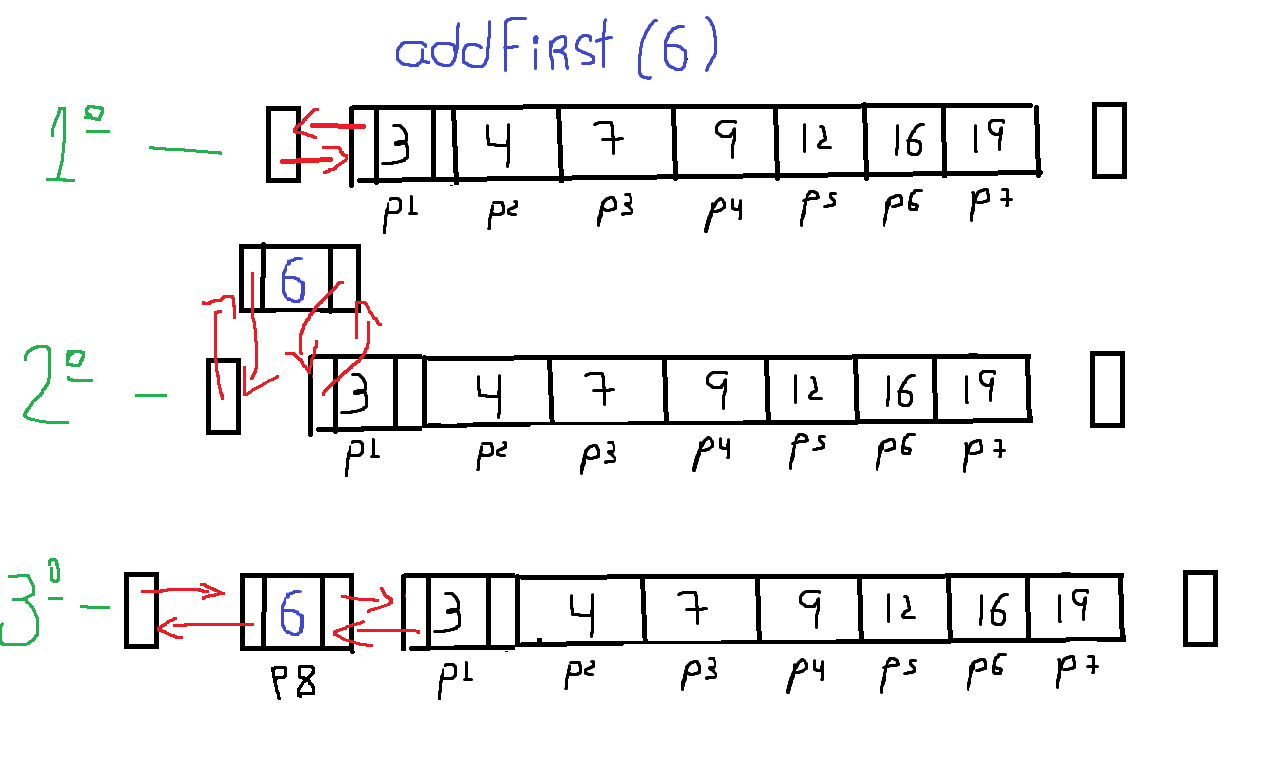 addFirst (6)
1º — 3 4 7 9 12 16 19
p1 p2 p3 p4 p5 p6 p7
6
2º - 3 4 7 9 12 16 19
p1 p2 p3 p4 p5 p6 p7
3º - 6 3 4 7 9 12 16 19
p8 p1 p2 p3 p4 p5 p6 p7